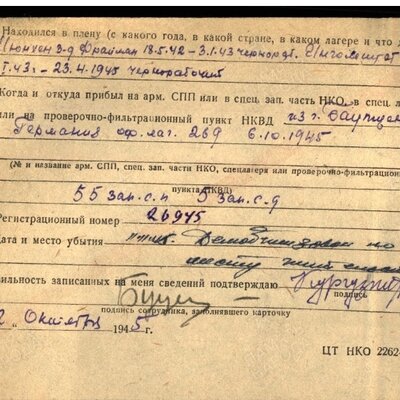 Находился в плену (с какого года, в какой стране, в каком лагере и что
Мюнхен з-д 18.5.42 – 3.1.43 чернораб. Инголштат
1.43 г. – 23.4.1945 чернорабочий
Когда и откуда прибыл на арм. СПП или в спец. зап. часть НКО, в спец. л
или на проверочно-фильтрационный пункт НКВД из г.
Германия оф. лаг. 269 6.10.1945
(№ и название арм. СПП, спец. зап. части НКО, спецлагеря или проверочно-фильтрацион
пункта НКВД)
55 зап. с.п 5 зап. с.д
Регистрационный номер 26945
Дата и место убытия Демобилизован по
месту
вильность записанных на меня сведений подтверждаю
подпись
подпись сотрудника, заполнявшего карточку
2 „ Октября 1945 г.
ЦТ НКО 2262